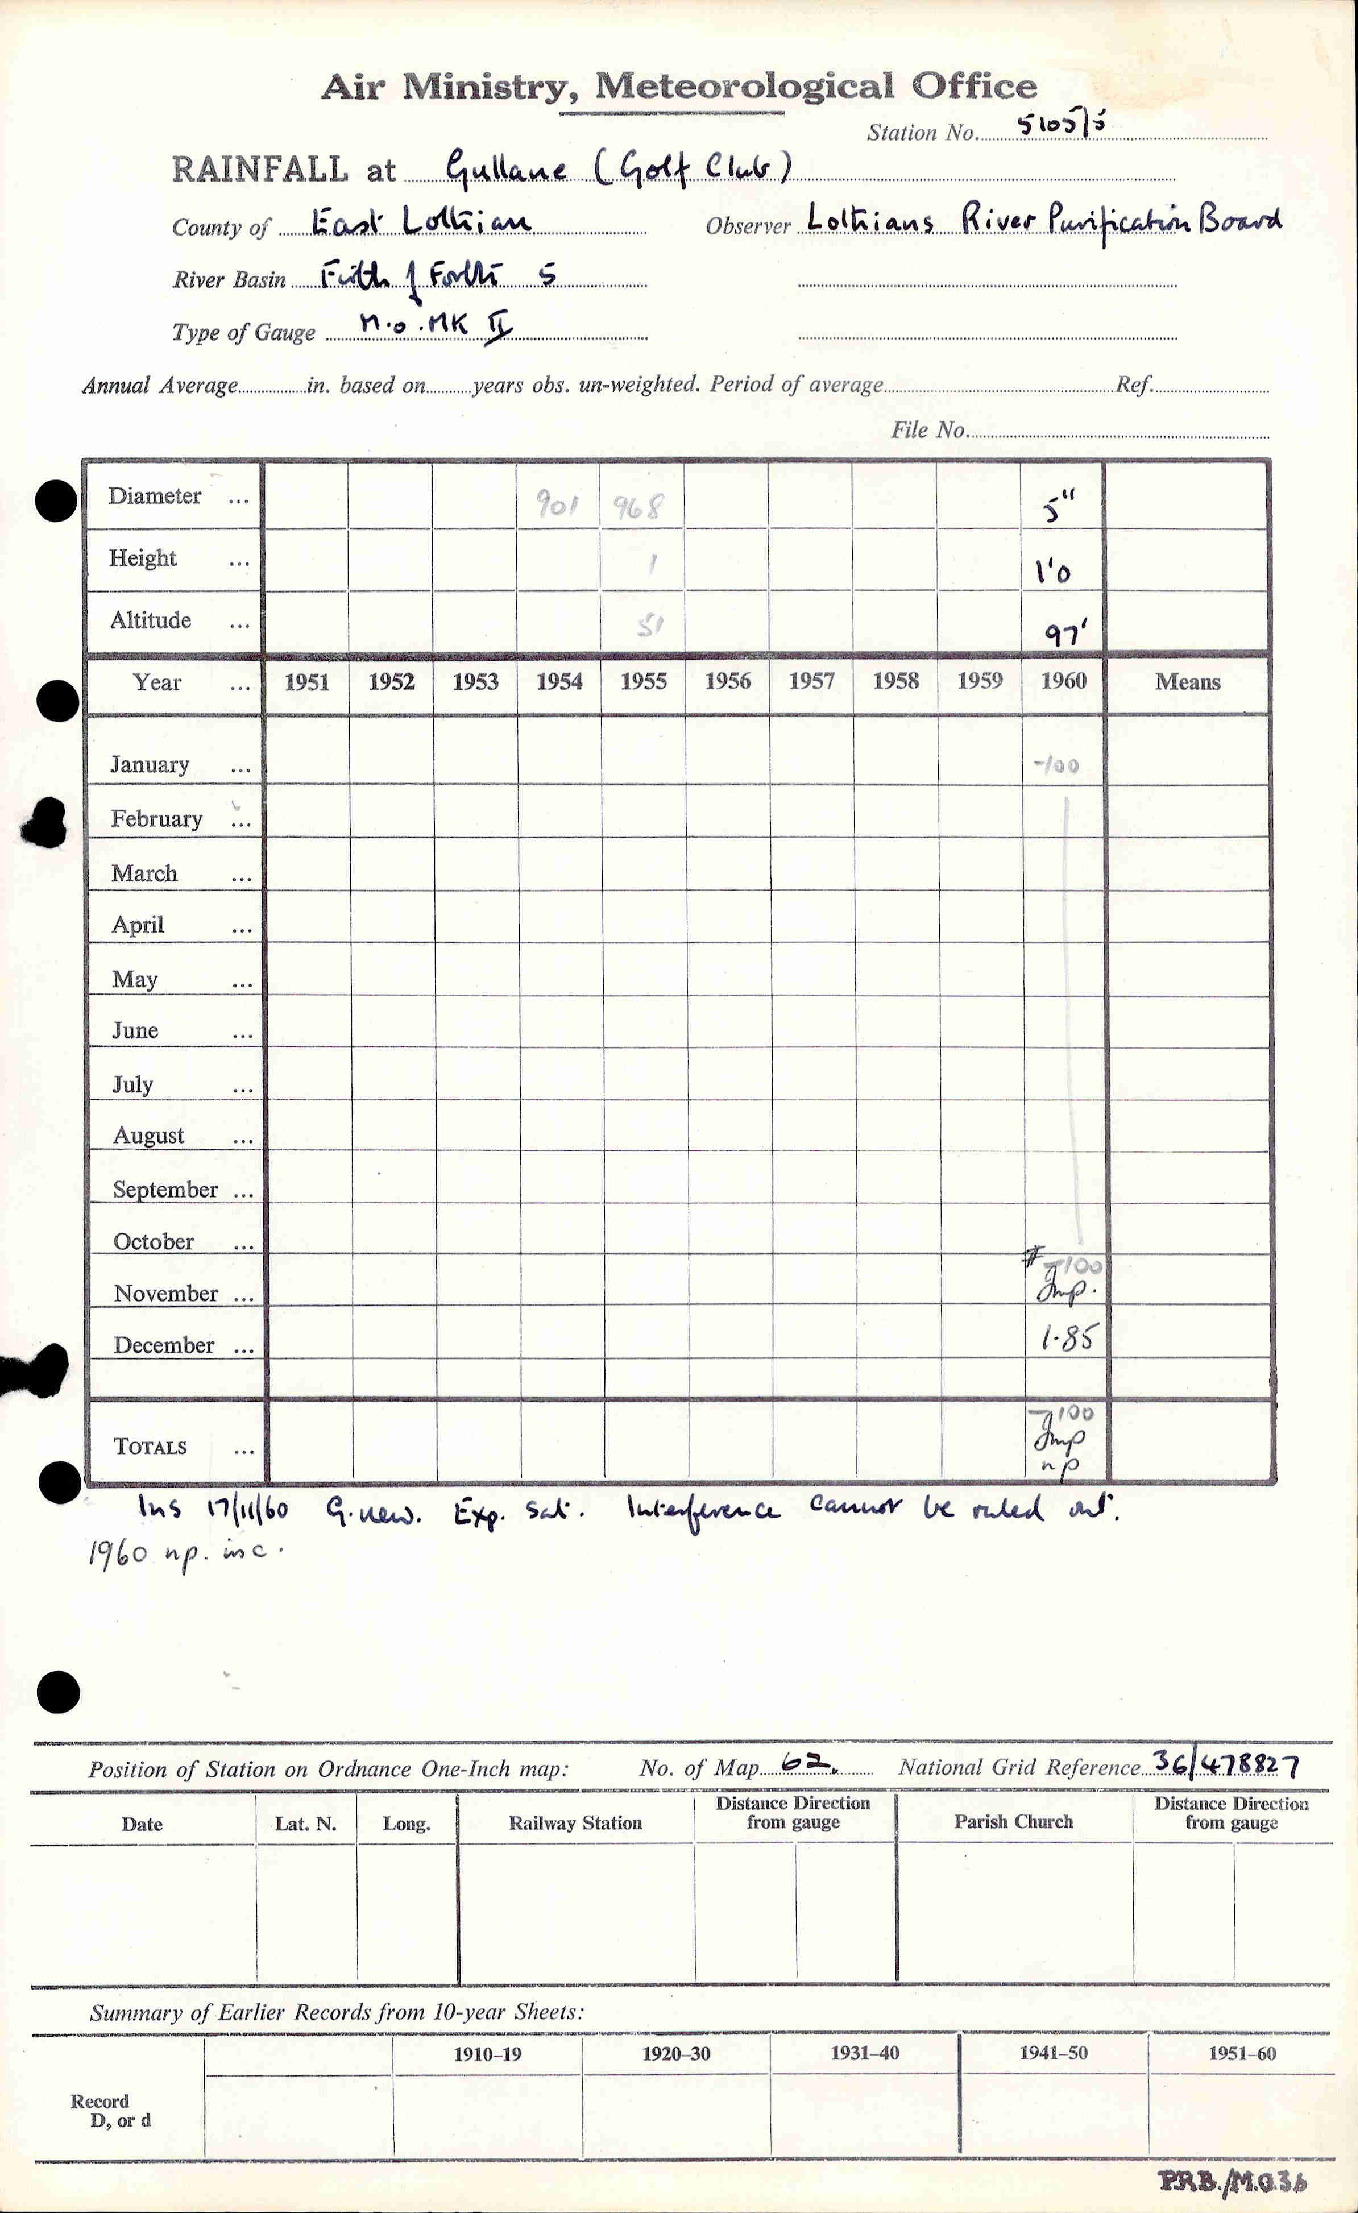 Air Ministry, Meteorological Office
Station No. 5105/5
RAINFALL at Gullane (Golf Club)
County of East Lothian Observer Lothians River Purification Board
River Basin Firth of Forth S
Type of Gauge M.O. MK II
Annual Average in. based on years obs. un-weighted. Period of average Ref.
File No.
Diameter ... 901 968 5"
Height ... 1 1'0
Altitude ... 51 97'
Year ... 1951 1952 1953 1954 1955 1956 1957 1958 1959 1960 Means
January ... -100
February ...
March ...
April ...
May ...
June ...
July ...
August ...
September ...
October ...
-100
November ... Imp.
December ... 1.85
-100
TOTALS ... Imp
np
Ins 17/11/60 G. new. Exp. Sat. Interference cannot be ruled out.
1960 np. inc.
Position of Station on Ordnance One-Inch map: No. of Map 62. National Grid Reference 36/478827
Date Lat. N. Long. Railway Station Distance Direction from gauge Parish Church Distance Direction from gauge
Summary of Earlier Records from 10-year Sheets:
1910-19 1920-30 1931-40 1941-50 1951-60
Record
D, or d
P.R.B./M.O.36